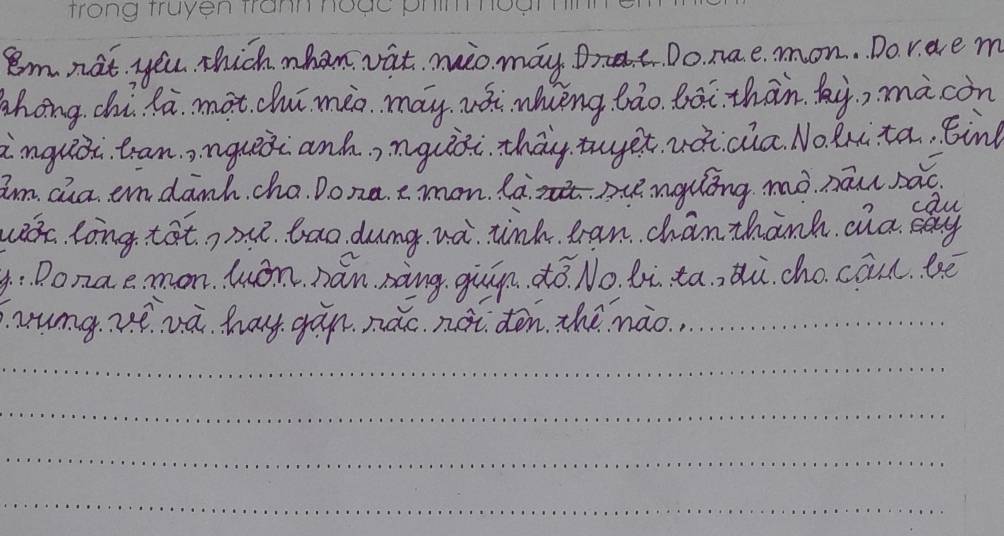 trong truyện tranh hoặc phim hoạt hình em thích
Em rất yêu thích nhân vật mèo máy Do rae mon. Do ra e m
không chỉ là một chú mèo máy với những bảo bối thần kỳ, mà còn
à người bạn, người anh, người thầy tuyệt vời của Nobi ta. Tình
ảm của em dành cho Do ra e mon là sự ngưỡng mộ sâu sắc
ước lòng tốt, sự bao dung và tình bạn chân thành của cậu
y. Do ra e mon luôn sẵn sàng giúp đỡ No bi ta, dù cho cậu bé
vụng về và hay gặp rắc rối đến thế nào.